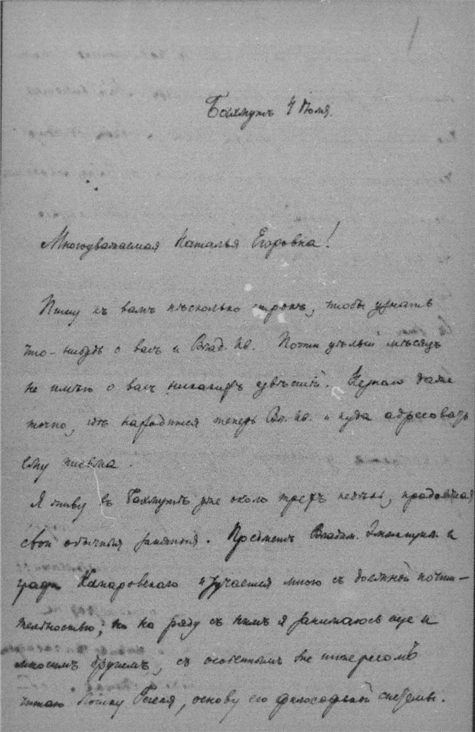 Бахмутъ 4 Іюля.
Многоуважаемая Наталья Егоровна!
Пишу къ вамъ нѣсколько строкъ, чтобы узнать
что-нибудь о васъ и Влад. Ив. Почти цѣлый мѣсяцъ
не имѣю о васъ никакихъ извѣстій. Не знаю даже
точно, гдѣ находится теперь Вл. Ив. и куда адресовать
ему письма.
Я живу въ Бахмутѣ уже около трехъ недѣль, продолжая
свои обычныя занятія. Предметъ Владим.
графа Комаровскаго изучается мною съ должной почти-
тельностью; но на ряду съ нимъ я занимаюсь еще и
многимъ другимъ, съ особеннымъ же интересомъ
читаю Логику Гегеля, основу его философской системы.